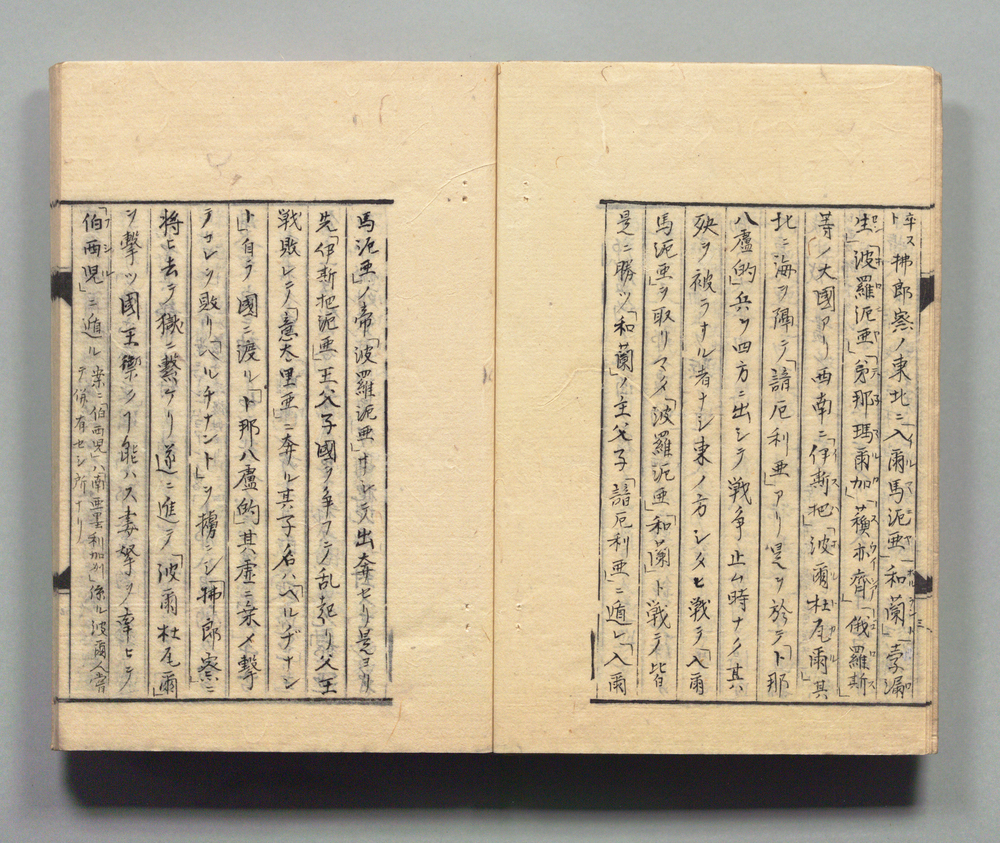 ト平ス拂郎察ノ東北ニ「入爾馬泥亜」「和蘭」「孛漏
生」「波羅泥亜」「弟那瑪爾加」「蘓亦齊」「俄羅斯」
等ノ大國アリ西南ニ「伊斯把」「波爾杜尾爾」其
北ニ海ヲ隔テ「諳厄利亜」アリ是ヲ於テ「ト那
八盧的」兵ヲ四方ニ出シテ戦争止ム時ナク其
殃ヲ被ラサル者ナシ東ノ方シタヒ戦テ「入爾
馬泥亜」ヲ取リマタ「波羅泥亜」「和蘭」ト戦テ皆
是ニ勝ツ「和蘭」ノ主父子「諳厄利亜」ニ遁レ「入爾
馬泥亜」ノ帝「波羅泥亜」サシテ出奔セリ是ヨリ
先「伊斯把泥亜」王父子國ヲ争フテ乱起リ父王
戦敗レテ「意太里亜」ニ奔ル其子名ハ「ヘルヂナン
ト」自ラ國ニ渡ル「ト那八盧的」其虚ニ乗メ撃
テサレヲ敗リ「ヘルチナント」ヲ擒ニシ「拂郎察」ニ
将ヒ去テ獄ニ繋ケリ遂ニ進テ「波爾杜尾爾」
ヲ撃ツ國王禦ク了能ハス妻孥ヲ牽ヒテ
「伯西児」ニ遁ル 案ニ「伯西児」ハ南亜墨利加ノ別 係ル波爾人嘗
テ併有セシ所ナリ